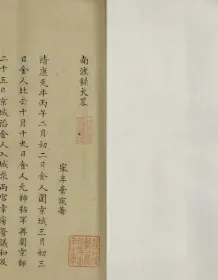 南渡錄大畧
宋辛棄疾著
靖康元年丙午二月初二日金人圍京城三月三
日金人北去十月十九日金人元帥粘罕再圍京師
二十五日京城陷金人入城求兩宮幸虜營議和及